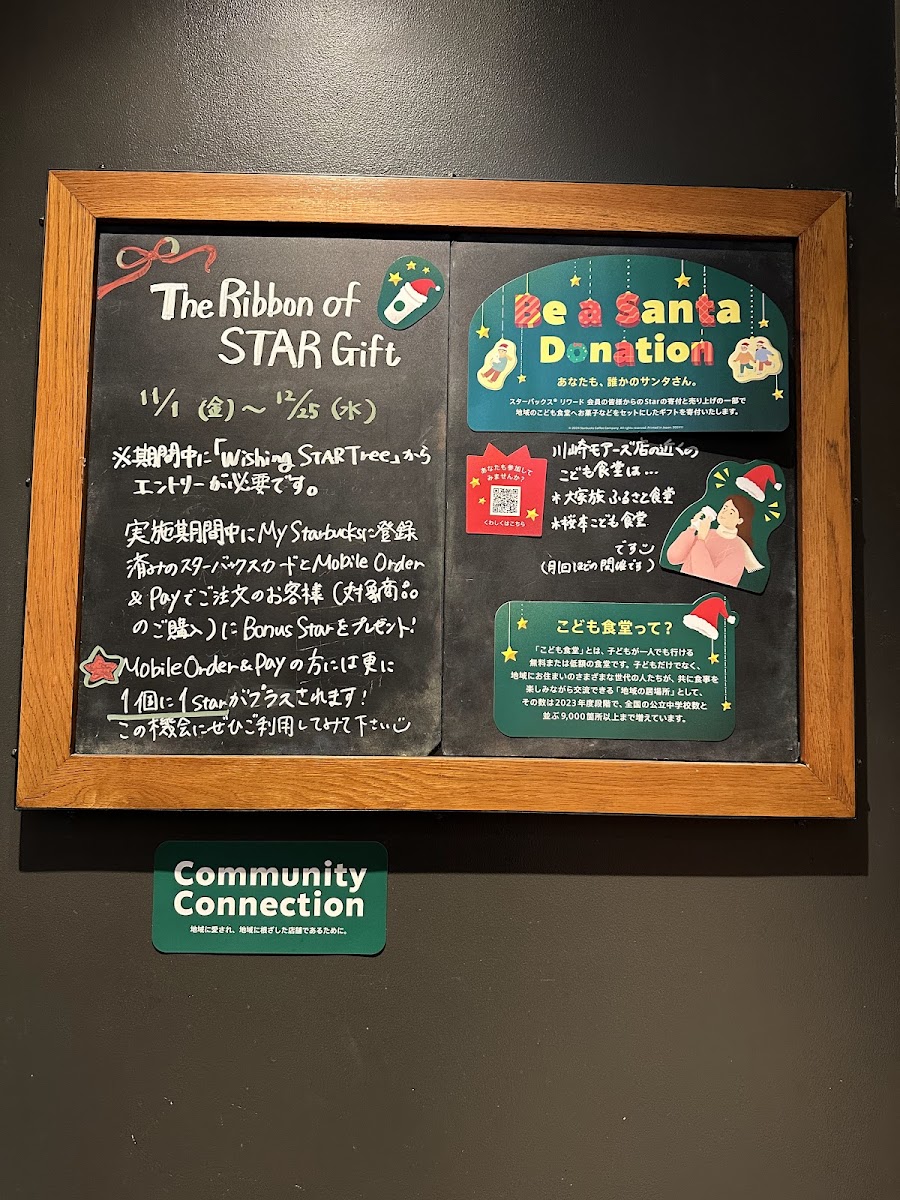 The Ribbon of
STAR Gift
11/1 (金)~12/25 (水)
※期間中に「Wishing STAR Tree」から
エントリーが必要です。
実施期間中にMy Starbucksに登録
済みのスターバックスカードとMobile Order
& Payでご注文のお客様(対象商品
のご購入)にBonus Starをプレゼント!
Mobile Order & Payの方には更に
1個に1Starがプラスされます!
この機会にぜひご利用してみて下さい
Be a Santa
Donation
あなたも、誰かのサンタさん。
スターバックス® リワード 会員の皆様からのStarの寄付と売り上げの一部で
地域のこども食堂へお菓子などをセットにしたギフトを寄付いたします。
あなたも参加して
みませんか?
くわしくはこちら
川崎モアーズ店の近くの
こども食堂は…
* 大家族 ふるさと食堂
* 桜本こども食堂
です
(月1回ほどの開催です)
こども食堂って?
「こども食堂」とは、子どもが一人でも行ける
無料または低額の食堂です。子どもだけでなく、
地域にお住まいのさまざまな世代の人たちが、共に食事を
楽しみながら交流できる「地域の居場所」として、
その数は2023年度段階で、全国の公立中学校数と
並ぶ9,000箇所以上まで増えています。
Community
Connection
地域に愛され、地域に根ざした店舗であるために。